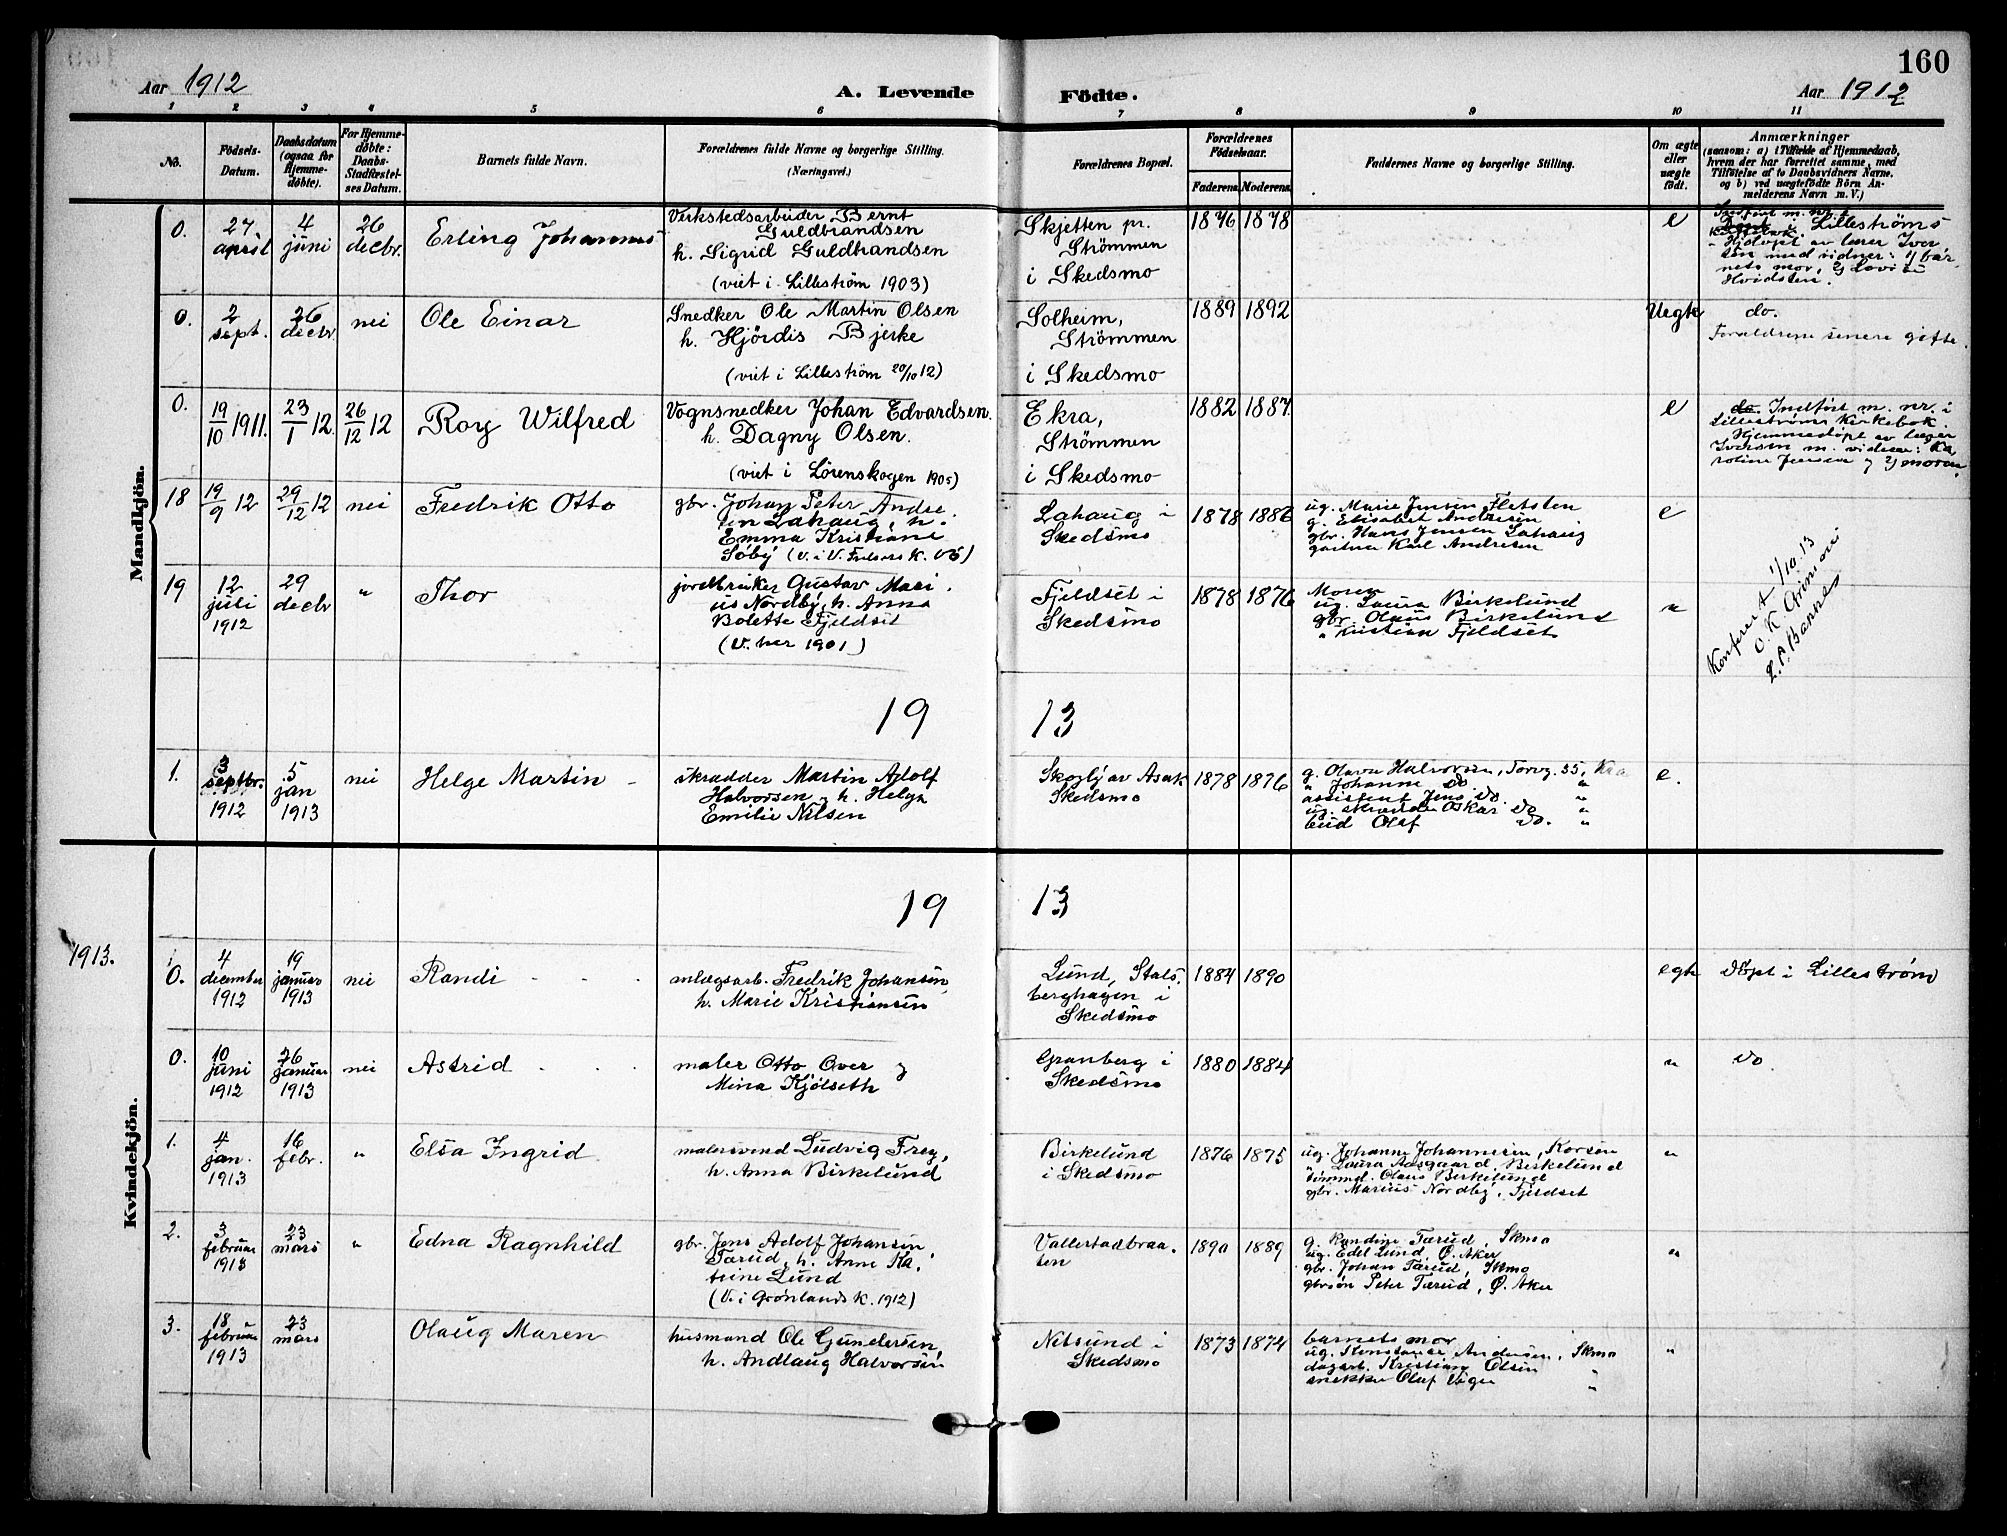 160
Aar 1912
A. Levende Födte.
Aar 1912
1 2 3 4 5 6 7 8 9 10 11
No.
Födsels-
Datum.
Daabsdatum
(ogsaa for
Hjemme-
döbte).
For Hjemme-
döbte:
Daabs-
Stadfæstel-
ses Datum.
Barnets fulde Navn.
Forældrenes fulde Navne og borgerlige Stilling.
(Næringsvei.)
Forældrenes Bopæl.
Forældrenes
Födselsaar.
Faderens. Moderens.
Faddernes Navne og borgerlige Stilling.
Om ægte
eller
uægte
födt.
Anmærkninger
(saasom: a) i Tilfælde af Hjemmedaab,
hvem der har forrettet samme, med
Tilföielse af to Daabsvidners Navne,
og b) ved uægtefödte Börn An-
melderens Navn m. V.)
Mandkjön.
0.
27.
april
4
juni
26
decbr.
Erling Johannes
Verkstedsarbeider Bernt
Guldbrandsen
h. Sigrid Guldbrandsen
(viet i Lilleström 1903)
Skjetten pr.
Strömmen
i Skedsmo
1876 1878
e
Lilleströms
Hjdöpt av lærer Iver
sen med vidner: 1) bar-
nets mor, 2) Lovise
Hvidsten.
0.
2
sept.
26
decbr
nei
Ole Einar
Snedker Ole Martin Olsen
h. Hjördis Bjerke
(viet i Lilleström 20/10 12)
Solheim,
Strömmen
i Skedsmo
1889 1892
Uegte
do.
Foreldrene senere gifte.
0.
19/10 1911.
23/1 12.
26/12 12
Roy Wilfred
Vognsnedker Johan Edvardsen.
h. Dagny Olsen.
(viet i Lörenskogen 1905)
Ekra,
Strömmen
i Skedsmo
1882 1887
e
do. Indført m. nr. i
Lillestrøms Kirkebok.
Hjemmedöpt av læger
Iversen m. vidner: Ka
roline Jensen og 2) moren.
18
19/9 12
29/12 12
nei
Fredrik Otto
gbr. Johan Peter Andre.
sen Lahaug, h.
Emma Kristiane
Söby
Lahaug i
Skedsmo
1878 1886
ug. Marie Jensen Fletsten
g. Elisabet Andresen
gbr. Hans Jensen Lahaug
gartner Karl Andresen
e
19
12
juli
1912
29
decbr
"
Thor
jordbruker Gustav Mari.
us Nordby, h. Anna
Bolette Fjeldset
(V. her 1901)
Fjeldset i
Skedsmo
1878 1876
Moren
ug. Laura Birkelund
gbr. Olaus Birkelund
" Kristian Fjeldset
"
Konferert 1/10.13
O. K. Grimsøn
L. P. Bakness
19 13
1.
3
septbr.
1912
5
jan
1913
nei
Helge Martin
skrædder Martin Adolf
Halvorsen, h. Helga
Emilie Nilsen
Skogly av Asak
Skedsmo
1878 1876
g. Olava Halvorsen, Torvg. 35, Kra
" Johanne do "
assistent Jens do. "
ug. skrædder Oskar do "
bud Olaf do. "
e.
19 13
1913.
Kvindekjön.
1
0.
4
december
1912
19
januar
1913
nei
Randi
anlægsarb. Fredrik Johansen,
h. Marie Kristiansen
Lund, Stals.
berghagen i
Skedsmo
1884 1890
egte
döpt i Lillestrøm
0.
10
juni
1912
26
januar
1913
nei
Astrid
maler Otto Over og
Mina Kjölseth
Granberg i
Skedsmo
1880 1884
"
do
1.
4
jan.
1913
16
febr.
"
Elsa Ingrid
malersvend Ludvig Frey,
h. Anna Birkelund
Birkelund
i Skedsmo
1876 1875
ug. Johanne Johannesen, Korsen
" Laura Aasgaard, Birkelund
tömmd. Olaus Birkelund
gbr. Marius Nordby, Fjeldset
"
2.
3
februar
1913
23
mars
"
Edna Ragnhild
gbr. Jens Adolf Johansen,
Tærud, h. Anne Ka.
trine Lund
(V. i Grønlands K. 1912)
Vallerstadbraa.
ten
1890 1889
g. Randine Tærud, Skmo
ug. Edel Lund, Ø. Aker
gbr. Johan Tærud, Skmo
gbrsøn Peter Tærud, Ø. Aker
"
3.
18
februar
1913
23
mars
Olaug Maren
husmand Ole Gundersen,
h. Andlaug Halvorsen
Nitsund i
Skedsmo
1873 1874
barnets mor
ug. Konstanse Andersen, Skmo
dagarb. Kristian Olsen
snekker Olaf Viger "
"